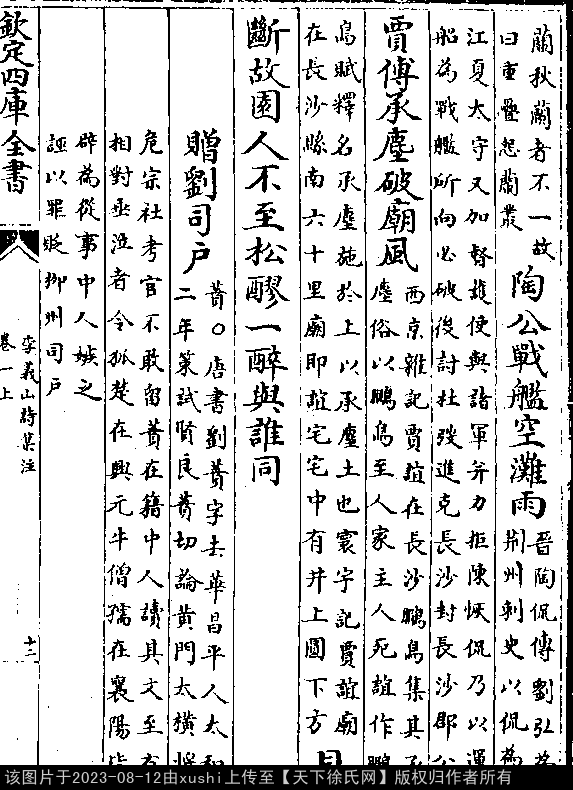 蘭秋蘭者不一故
曰重疊怨蘭叢
陶公戰艦空灘雨
晉陶侃傳劉弘為
荆州刺史以侃為
江夏太守又加督護使與諸軍并力拒陳恢侃乃以運
船為戰艦所向必破後討杜弢進克長沙封長沙郡公
賈傅承塵破廟風
西京雜記賈誼在長沙鵩鳥集其承
塵俗以鵩鳥至人家主人死誼作鵩
鳥賦釋名承塵施於上以承塵土也寰宇記賈誼廟
在長沙縣南六十里廟即誼宅宅中有井上圓下方
斷故園人不至松醪一醉與誰同
贈劉司户
蕡〇唐書劉蕡字去華昌平人太和
二年策試賢良蕡切論黄門太横將
危宗社考官不敢留蕡在籍中人讀其文至有
相對垂泣者令狐楚在興元牛僧孺在襄陽皆
辟為從事中人嫉之
誣以罪貶柳州司户
欽定四庫全書
李義山詩集注
卷一上
十三
该图片于2023-08-12由xushi上传至【天下徐氏网】版权归作者所有